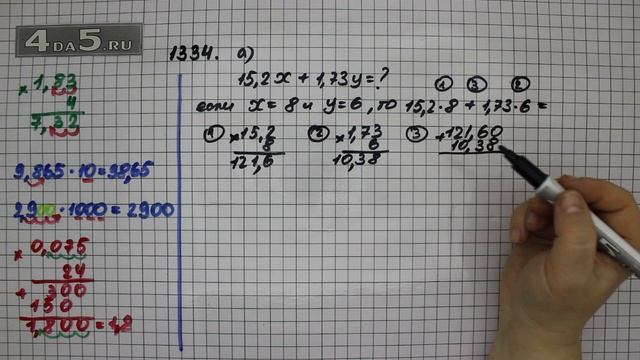 4DA5.RU
1334. а)
15,2x + 1,73y = ?
① ③ ②
если x = 8 и y = 6, то 15,2 · 8 + 1,73 · 6 =
① × 15,2
8
121,6
② × 1,73
6
10,38
③ + 121,60
10,38
× 1,83
4
7,32
9,865 · 10 = 98,65
2,900 · 1000 = 2900
× 0,075
24
+ 300
150
1,800 = 1,8